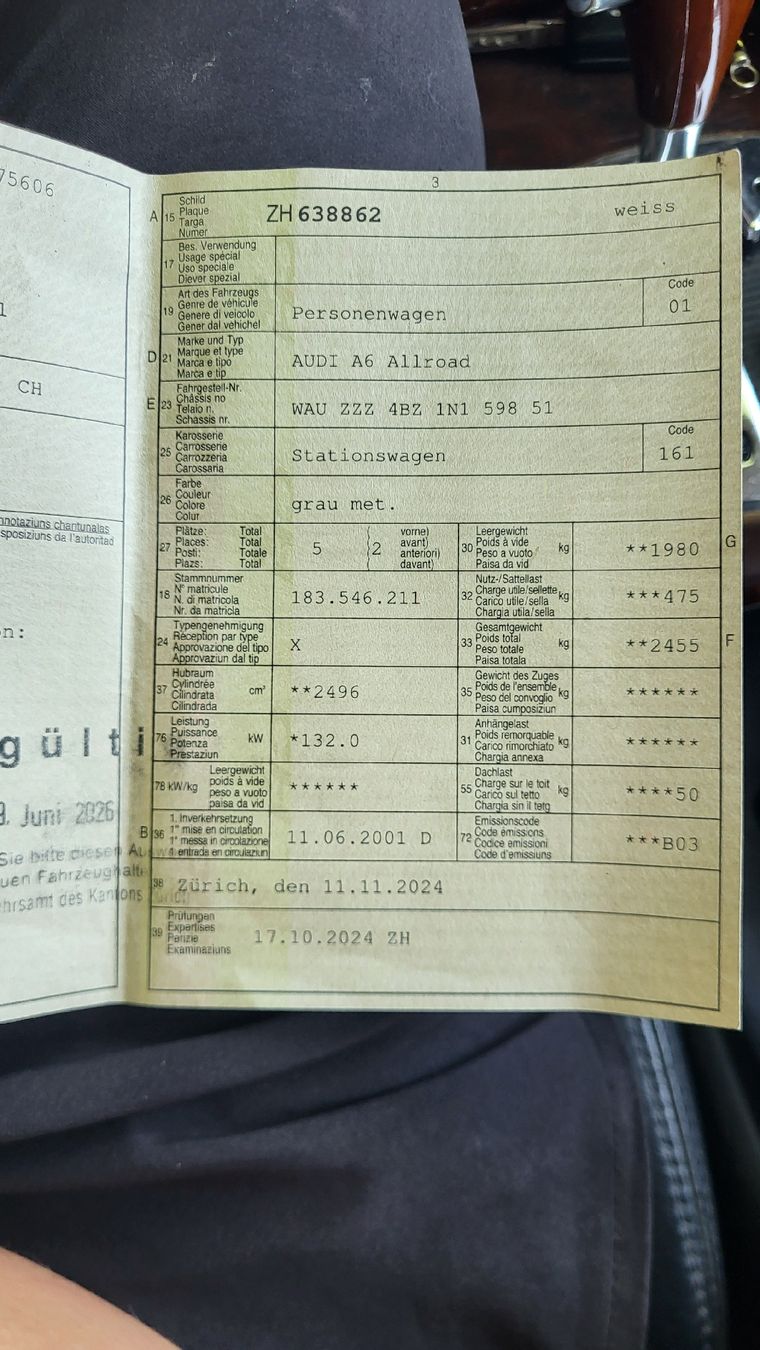 75606
CH
nnotaziuns chantunalas
sposiziuns da l'autoritad
on:
gülti
9. Juni 2026
Sie bitte diesen Ausw
uen Fahrzeughalte
ehrsamt des Kantons
3
A 15 Schild
Plaque
Targa
Numer
ZH 638862 weiss
17 Bes. Verwendung
Usage spécial
Uso speciale
Diever spezial
19 Art des Fahrzeugs
Genre de véhicule
Genere di veicolo
Gener dal vehichel
Personenwagen
Code
01
D 21 Marke und Typ
Marque et type
Marca e tipo
Marca e tip
AUDI A6 Allroad
E 23 Fahrgestell-Nr.
Châssis no
Telaio n.
Schassis nr.
WAU ZZZ 4BZ 1N1 598 51
25 Karosserie
Carrosserie
Carrozzeria
Carossaria
Stationswagen
Code
161
26 Farbe
Couleur
Colore
Colur
grau met.
27 Plätze: Total
Places: Total
Posti: Totale
Plazs: Total
5 (2 vorne)
avant)
anteriori)
davant)
30 Leergewicht
Poids à vide
Peso a vuoto
Paisa da vid
kg **1980 G
18 Stammnummer
N° matricule
N. di matricola
Nr. da matricla
183.546.211
32 Nutz-/Sattellast
Charge utile/sellette
Carico utile/sella
Chargia utila/sella
kg ***475
24 Typengenehmigung
Réception par type
Approvazione del tipo
Approvaziun dal tip
X
33 Gesamtgewicht
Poids total
Peso totale
Paisa totala
kg **2455 F
37 Hubraum
Cylindrée
Cilindrata
Cilindrada
cm³ **2496
35 Gewicht des Zuges
Poids de l'ensemble
Peso del convoglio
Paisa cumposiziun
kg ******
76 Leistung
Puissance
Potenza
Prestaziun
kW *132.0
31 Anhängelast
Poids remorquable
Carico rimorchiato
Chargia annexa
kg ******
78 kW/kg Leergewicht
poids à vide
peso a vuoto
paisa da vid
******
55 Dachlast
Charge sur le toit
Carico sul tetto
Chargia sin il tetg
kg ****50
B 36 1. Inverkehrsetzung
1re mise en circulation
1a messa in circolazione
1. entrada en circulaziun
11.06.2001 D
72 Emissionscode
Code émissions
Codice emissioni
Code d'emissiuns
***B03
38 Zürich, den 11.11.2024
39 Prüfungen
Expertises
Perizie
Examinaziuns
17.10.2024 ZH